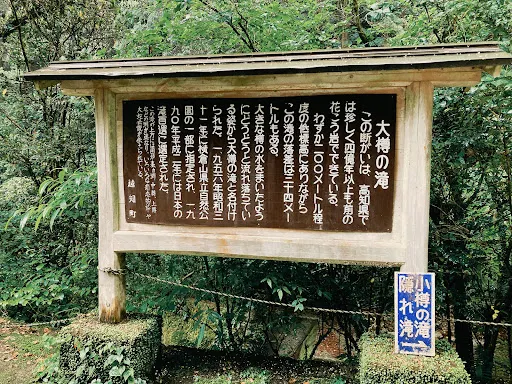 大樽の滝
この断がいは、高知県で
は珍しく四億年以上も前の
花こう岩でできている。
わずか二〇〇メートル程
度の低標高にありながら
この滝の落差は三十四メー
トルもある。
大きな樽の水を末いたよう
にどうどうと流れ落ちてい
る姿から大樽の滝と名付け
られた。一九五六年昭和三
十一年に横倉山県立自然公
園の一部に指定され、一九
九〇年平成二年には日本の
滝百選に選定された。
越知町
小樽の滝
隠れ滝